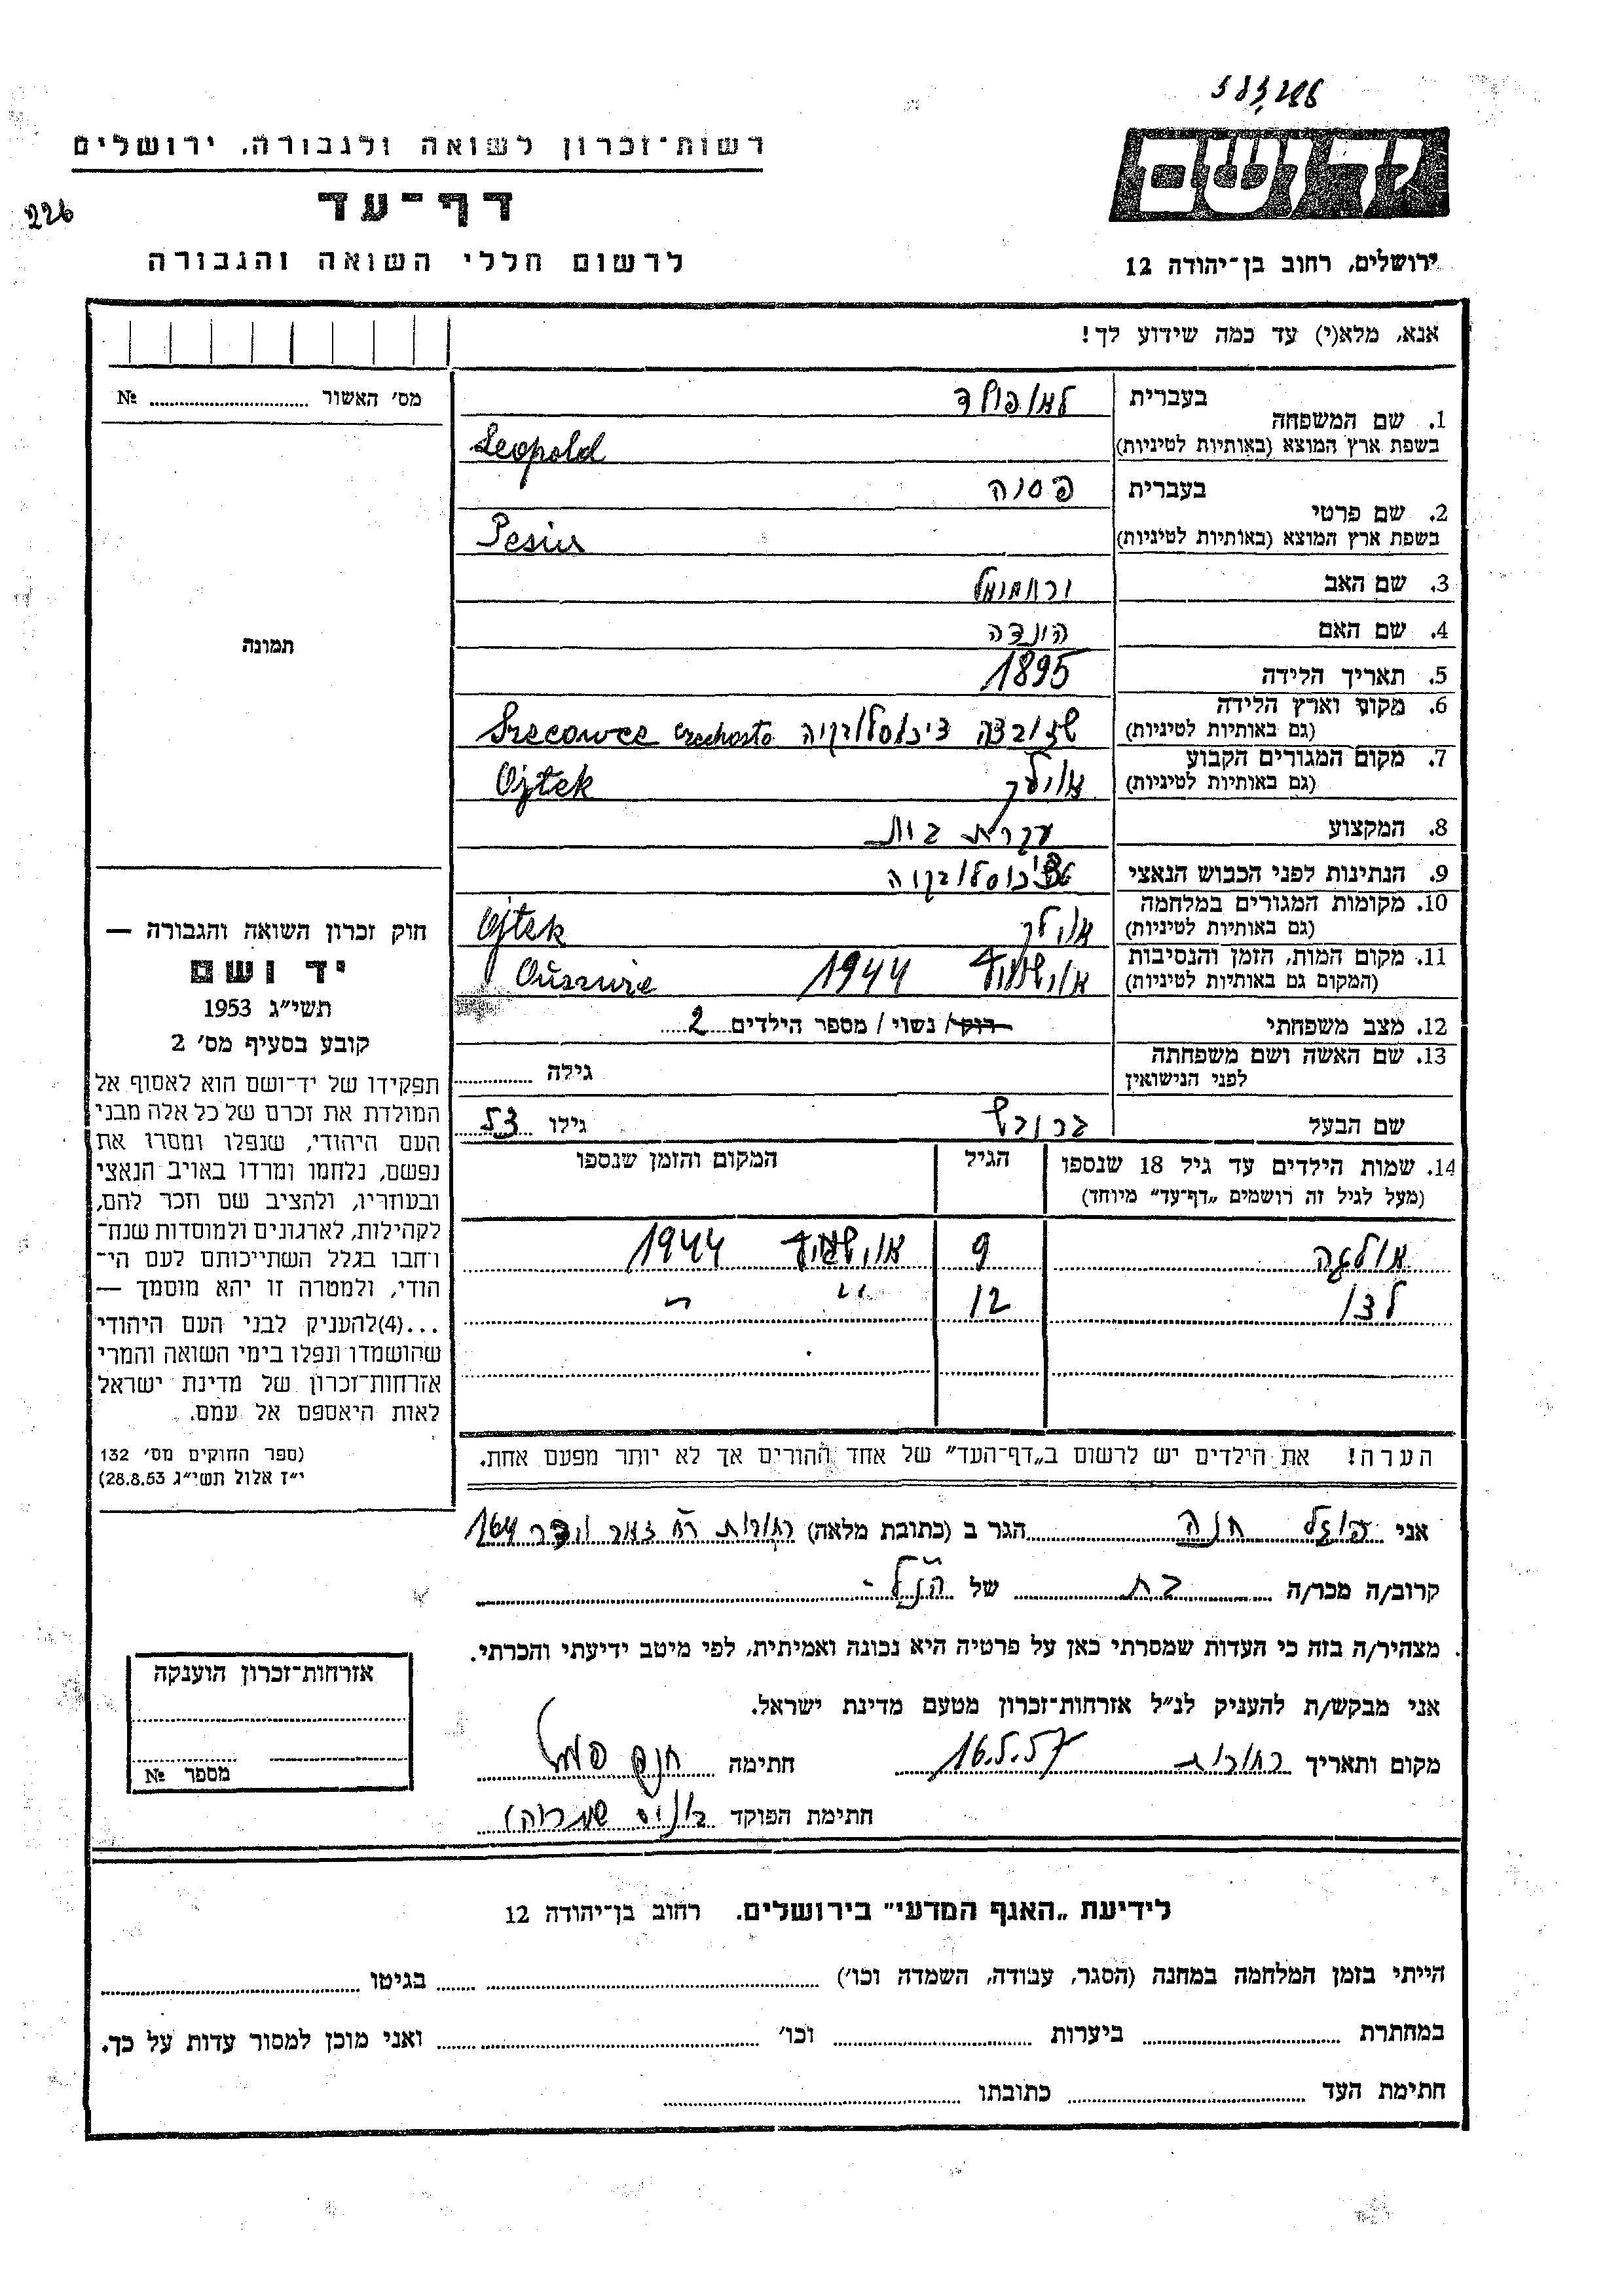 583286
רשות־זכרון לשואה ולגבורה, ירושלים
יד ושם
דף־עד
226
לרשום חללי השואה והגבורה
ירושלים, רחוב בן־יהודה 12
אנא, מלא(י) עד כמה שידוע לך!
מס׳ האשור № 
1. שם המשפחה
בעברית
לאופולד
בשפת ארץ המוצא (באותיות לטיניות)
Leopold
2. שם פרטי
בעברית
פסיה
בשפת ארץ המוצא (באותיות לטיניות)
3. שם האב ירחמיאל
4. שם האם הינדה
5. תאריך הלידה 1895
6. מקום וארץ הלידה
(גם באותיות לטיניות)
צ׳כוסלובקיה
7. מקום המגורים הקבוע
(גם באותיות לטיניות)
Ojtek
8. המקצוע עקרת בית
9. הנתינות לפני הכבוש הנאצי צ׳כוסלובקיה
10. מקומות המגורים במלחמה
(גם באותיות לטיניות)
Ojtek
11. מקום המות, הזמן והנסיבות
(המקום גם באותיות לטיניות)
אושוויץ 1944
12. מצב משפחתי
רוק/ נשוי/ מספר הילדים 2
13. שם האשה ושם משפחתה
לפני הנישואין
גילה
שם הבעל גילו 53
14. שמות הילדים עד גיל 18 שנספו
(מעל לגיל זה רושמים „דף־עד״ מיוחד)
הגיל
המקום והזמן שנספו
אולגה 9 אושוויץ 1944
12 ״ ״
הערה! את הילדים יש לרשום ב„דף־העד״ של אחד ההורים אך לא יותר מפעם אחת.
תמונה
חוק זכרון השואה והגבורה —
יד ושם
תשי״ג 1953
קובע בסעיף מס׳ 2
תפקידו של יד־ושם הוא לאסוף אל
המולדת את זכרם של כל אלה מבני
העם היהודי, שנפלו ומסרו את
נפשם, נלחמו ומרדו באויב הנאצי
ובעוזריו, ולהציב שם וזכר להם,
לקהילות, לארגונים ולמוסדות שנח־
רחבו בגלל השתייכותם לעם הי־
הודי, ולמטרה זו יהא מוסמך —
...(4)להעניק לבני העם היהודי
שהושמדו ונפלו בימי השואה והמרי
אזרחות־זכרון של מדינת ישראל
לאות היאספם אל עמם.
(ספר החוקים מס׳ 132
י״ז אלול תשי״ג 28.8.53)
אני חנה הגר ב (כתובת מלאה) רחובות 164
קרוב/ה מכר/ה בת של הנ״ל
מצהיר/ה בזה כי העדות שמסרתי כאן על פרטיה היא נכונה ואמיתית, לפי מיטב ידיעתי והכרתי.
אני מבקש/ת להעניק לנ״ל אזרחות־זכרון מטעם מדינת ישראל.
מקום ותאריך רחובות 16.5.57 חתימה
חתימת הפוקד
אזרחות־זכרון הוענקה
מספר №
לידיעת „האגף המדעי״ בירושלים. רחוב בן־יהודה 12
הייתי בזמן המלחמה במחנה (הסגר, עבודה, השמדה וכו׳) בגיטו
במחתרת ביערות וכו׳ ואני מוכן למסור עדות על כך.
חתימת העד כתובתו